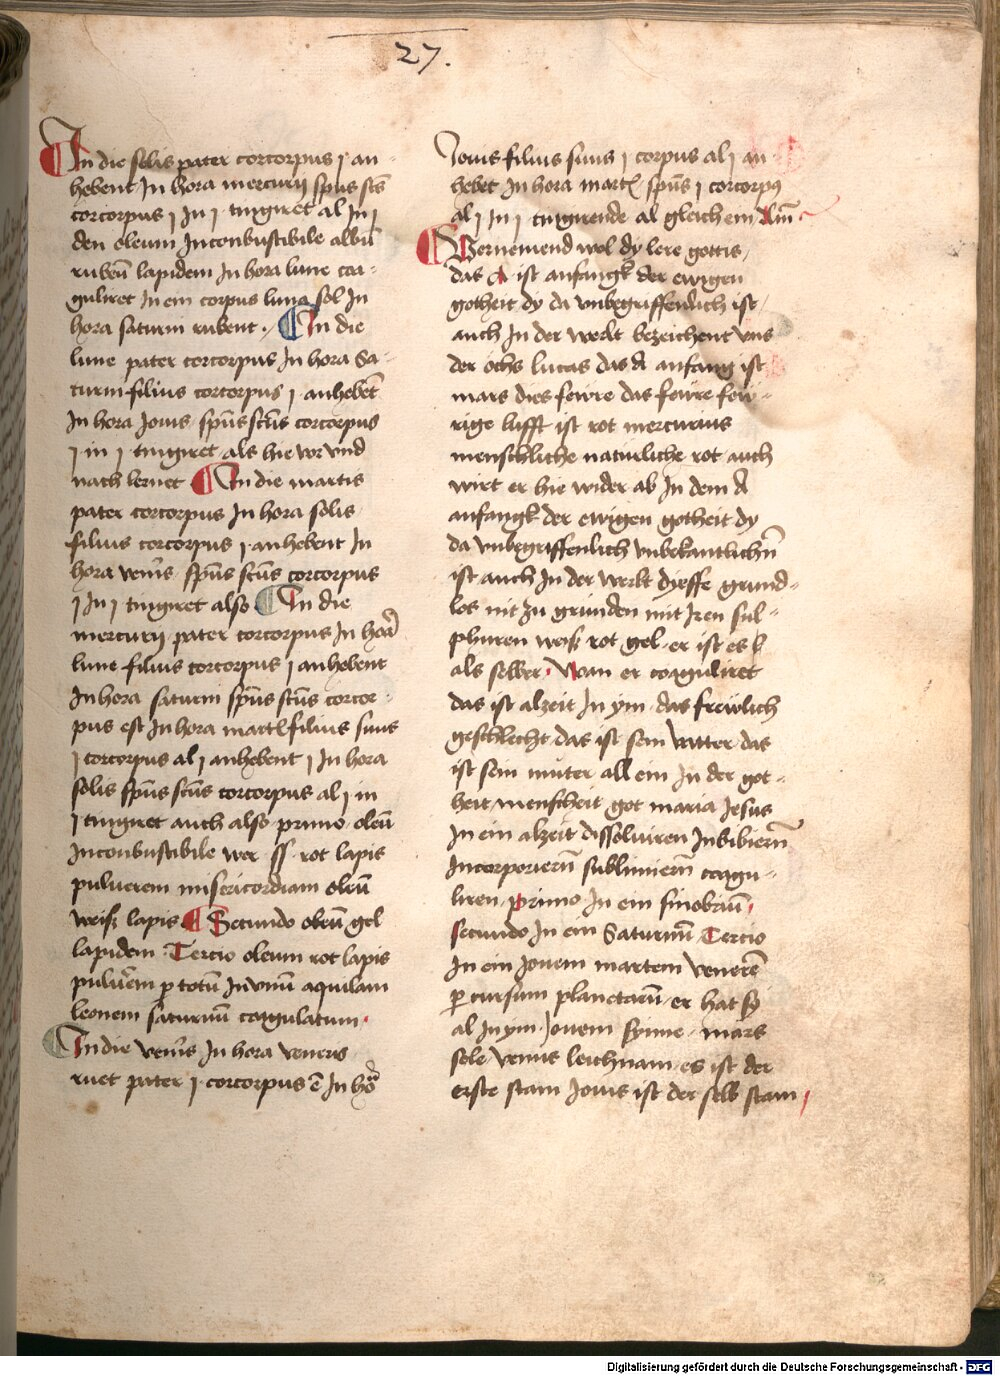 27.
In die solis pater corcorpus j an
hebent In hora mercurij spūs scūs
corcorpus j In j tingiret al In j
den oleum Inconbustibile albū
rubeū lapidem In hora lune coa-
guliret In ein corpus luna sol In
hora saturni rubent. In die
lune pater corcorpus In hora Sa-
turni filius corcorpus j anhebēt
In hora Jouis spūs scūs corcorpus
j in j tingiret als hie vor vnd
nach lernet In die martis
pater corcorpus In hora solis
filius corcorpus j anhebent In
hora venīs spūs scūs corcorpus
j In j tingiret also In die
mercurij pater corcorpus In hora
lune filius corcorpus j anhebent
In hora saturni spūs scūs corcor-
pus est In hora martis filius suus
j corcorpus al j anhebent j In hora
solis spūs scūs corcorpus al j in
j tingiret auch also primo oleū
Inconbustibile wer ff rot lapis
puluerem misericordiam oleū
weiß lapis Secundo oleū gel
lapidem Tercio oleum rot lapis
puluēm p totū In vnū aquilam
leonem saturnū coagulatum
In die venīs In hora veneris
ruet pater j corcorpus ē In hōa
Jouis filius suus j corpus al j an
hebet In hora martis spūs j corcorpus
al j In j tingirende al gleich ein
Vernemend wol dy lere gottis
das A ist anfangk der ewigen
gotheit dy da vnbegriffenlich ist
auch In der werlt bezeichent vns
der ochs lucas das A anfang ist
mars dies fewre das fewre few-
rige lufft ist rot mercurius
menschliche natürliche rot auch
wirt er hie wider ab In dem A
anfangk der ewigen gotheit dy
da vnbegriffenlich vnbekantlichn̄
ist auch In der werlt dyeffe grund-
los nit zu gründen mit Iren sul-
phuren weiß rot gel er ist es
als selber Wan er coaguliret
das ist alzeit In ym das freiwlich
geschlecht das ist sein vatter das
ist sein muter all ein In der got-
heit menscheit got maria Jesus
In ein alzeit dissoluiren Inbibiern̄
Incorporiern̄ sublimiern̄ coagu-
liren primo In ein sinobriū
secundo In ein Saturnū Tercio
In ein Jouem martem venerē
p cursum planetarū er hat sy
al In ym Jouem syme mars
sole venus leichnam es ist der
erste stam Jouis ist der selb stam
Digitalisierung gefördert durch die Deutsche Forschungsgemeinschaft - DFG